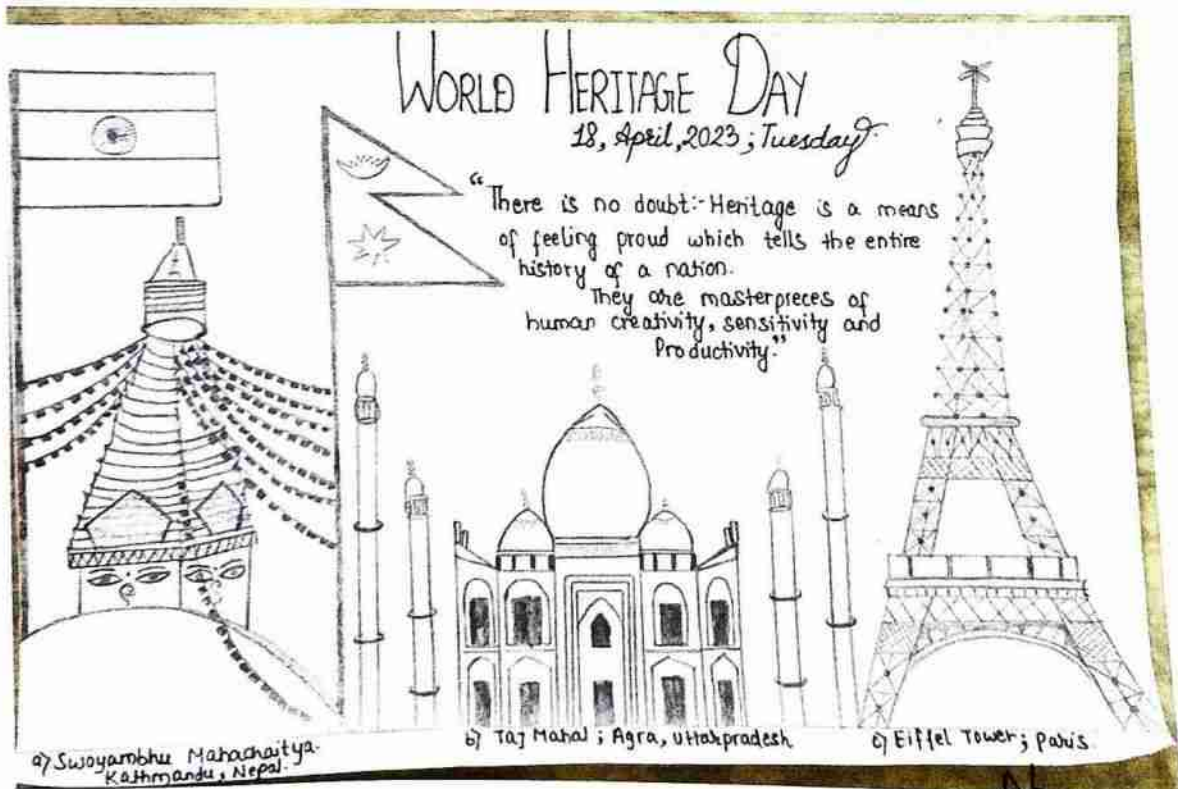 WORLD HERITAGE DAY
18, April, 2023 ; Tuesday
"There is no doubt:- Heritage is a means
of feeling proud which tells the entire
history of a nation.
They are masterpieces of
human creativity, sensitivity and
Productivity."
a) Swoyambhu Mahachaitya.
Kathmandu, Nepal.
b) Taj Mahal ; Agra, Uttarpradesh
c) Eiffel Tower ; Paris.